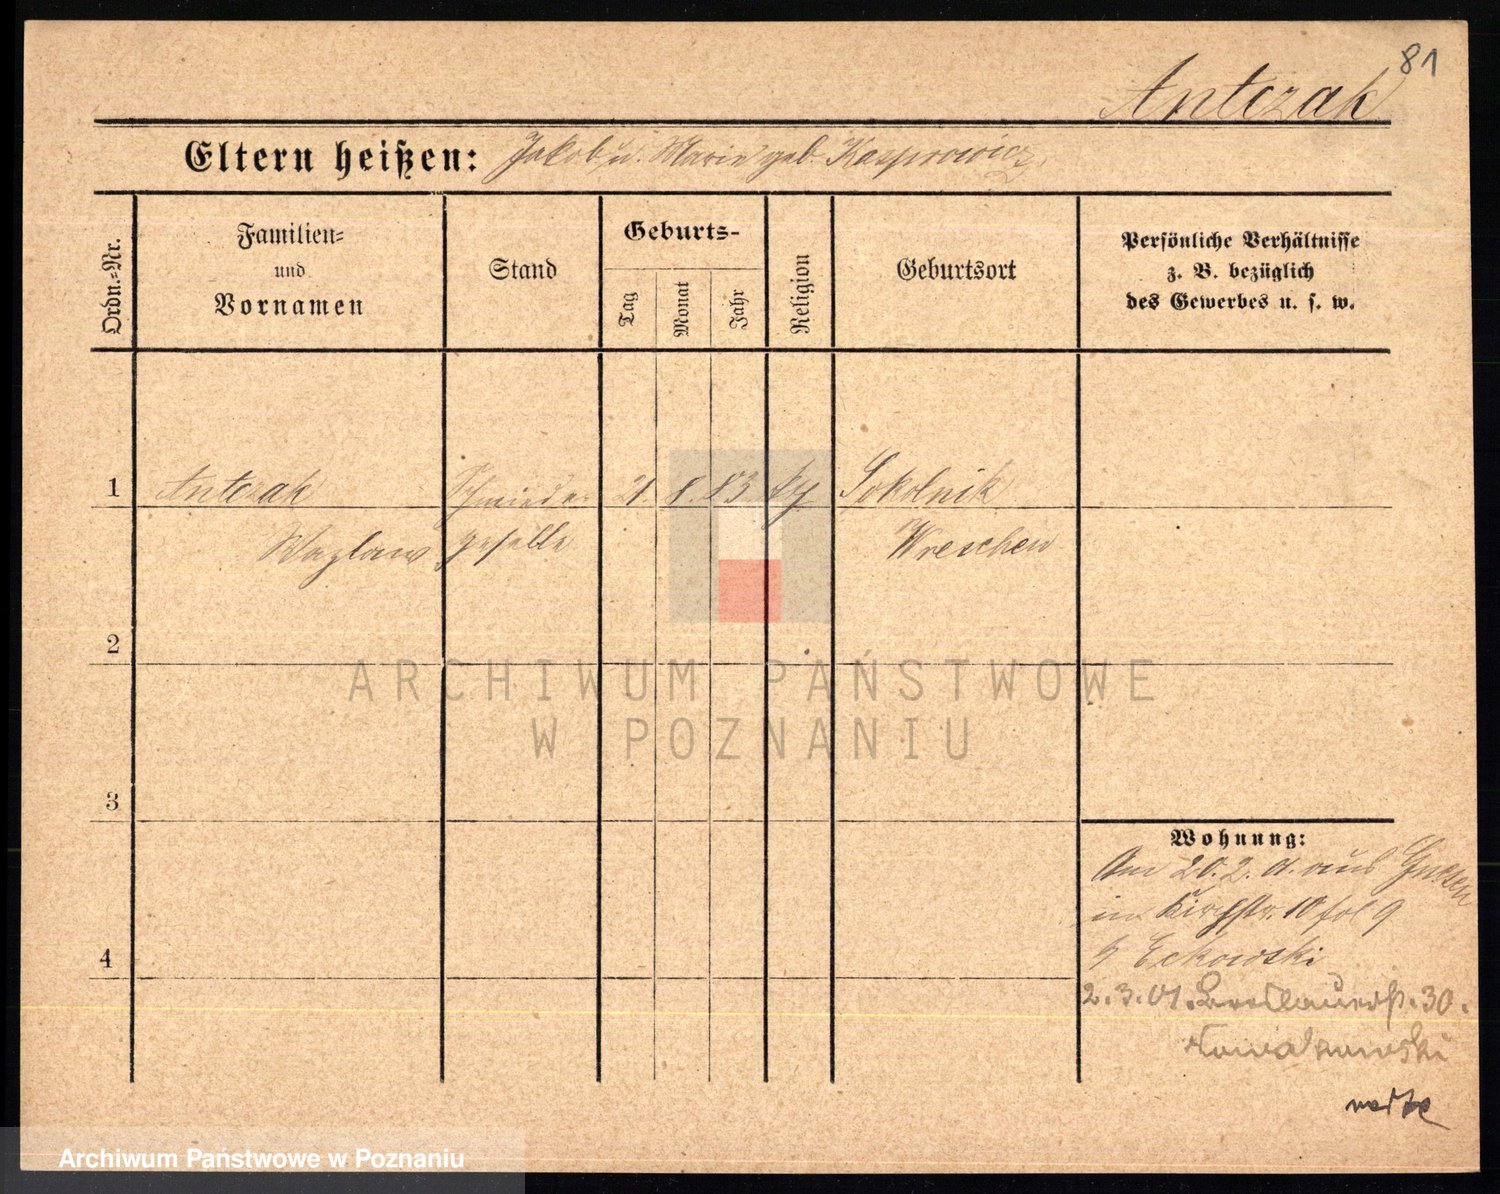 81
Antczak
Eltern heißen: Jakob u. Marie geb. Kasprowicz
Ordn.-Nr.
Familien-
und
Vornamen
Stand
Geburts-
Tag
Monat
Jahr
Religion
Geburtsort
Persönliche Verhältnisse
z. B. bezüglich
des Gewerbes u. s. w.
1 Antczak Schmiede- 21. 8. 83 kg Sokolnik
Wazlaw geselle Wreschen
2
3
4
Wohnung:
Am 20.2. 01. aus Gnesen
in Kirchstr. 10 fol 9
b Eckowski
2.3.01. Breslauerstr. 30.
Nowakowski
ARCHIWUM PAŃSTWOWE
W POZNANIU
Archiwum Państwowe w Poznaniu